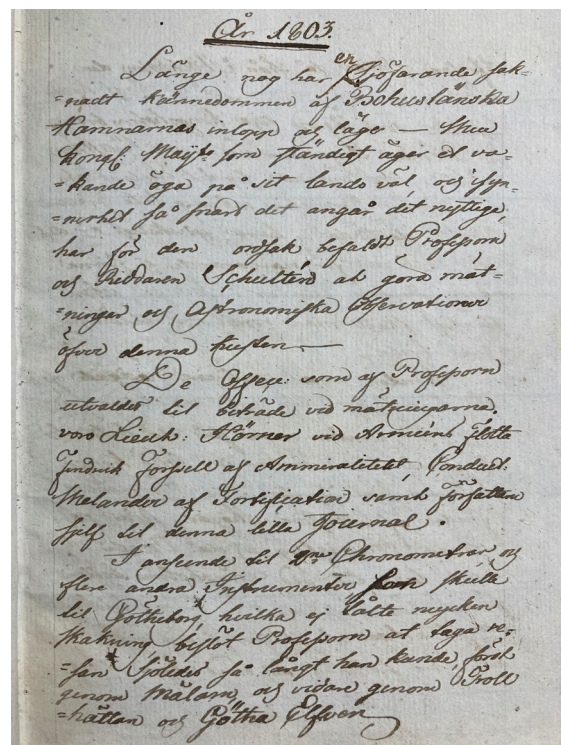 År 1803.
Länge nog har en Sjöfarande sak-
=nadt kännedommen af Bohuslänska
Hamnarnas inlopp och läge —
Kongl: Majt: som ständigt äger et va-
=kande öga på sit lands väl, och isyn-
=nerhet så snart det angår det nyttiga,
har för den orsak befaldt Professorn
och Riddaren Schultén at göra mät-
=ningar och Astronomiska observationer
öfver denna kusten —
De Offic: som af Professorn
utvaldes til biträde vid mätningarna.
voro Lieut: Hörner vid Armeens flotta
Findrick Forsell af Ammiralitetet, Conduct:
Melander af Fortification samt författaren
sjelf til denna lilla Journal.
I anseende til Chronometrar och
flere andra Instrumenter skulle
til Götheborg hvilka ej tålte mycken
skakning beslöt Professorn at taga re-
=san Sjöledes så långt han kunde, först
genom Mälarn, och vidare genom Troll
=hättan och Götha Elfven